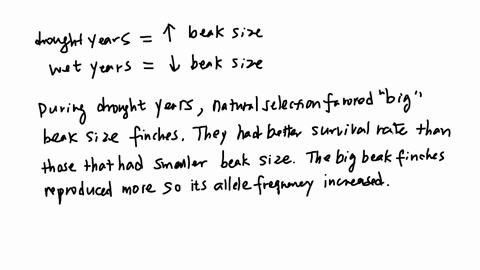 drought years = ↑ beak size
wet years = ↓ beak size
During drought years, natural selection favored "big"
beak size finches. They had better survival rate than
those that had smaller beak size. The big beak finches
reproduced more so its allele frequency increased.